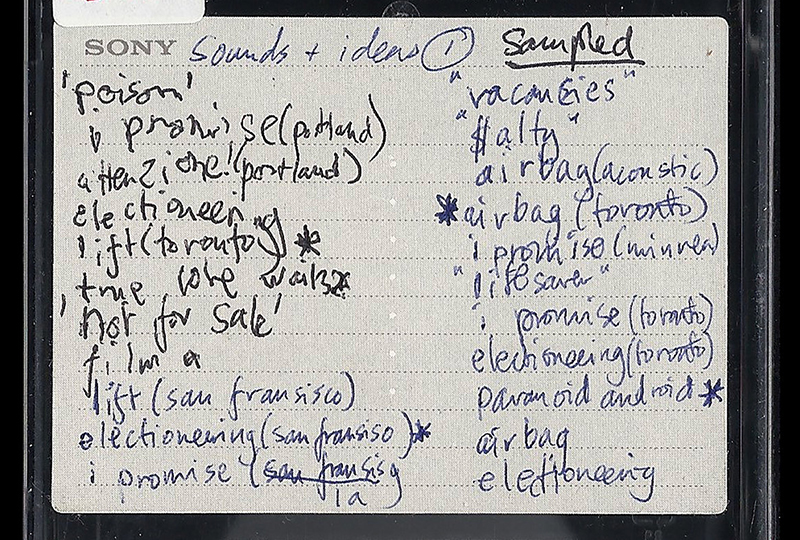 SONY Sounds + ideas ① Sampled
'poison'
i promise (portland)
attenzione! (portland)
electioneering
lift (toronto) *
true love waits *
'not for sale'
film a
lift (san fransisco)
electioneering (san fransiso) *
i promise (san fransis
la
"vacancies"
"$alty"
airbag (acoustic)
* airbag (toronto)
i promise (minnea)
"lifesaver"
i promise (toronto)
electioneering (toronto)
paranoid android *
airbag
electioneering